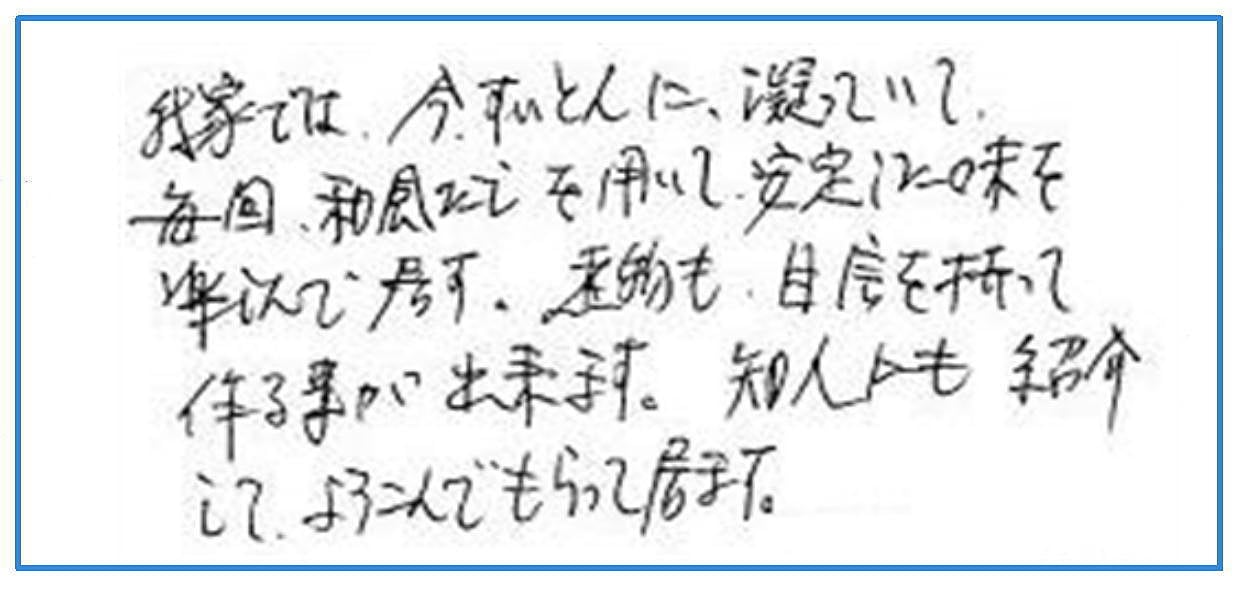 我家では、今、すいとんに、凝っていて、
毎回、和風だしを用いて、安定した味を
楽しんで居す。煮物も、自信を持って
作る事が出来ます。知人にも紹介
して、よろこんでもらって居ます。